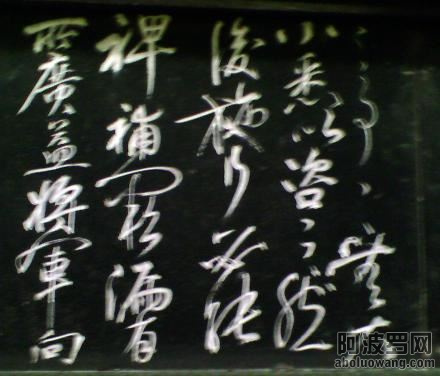 之事事無大
小悉以咨之然
後施行必能
裨補闕漏有
所廣益將軍向
阿波罗网
aboluowang.com